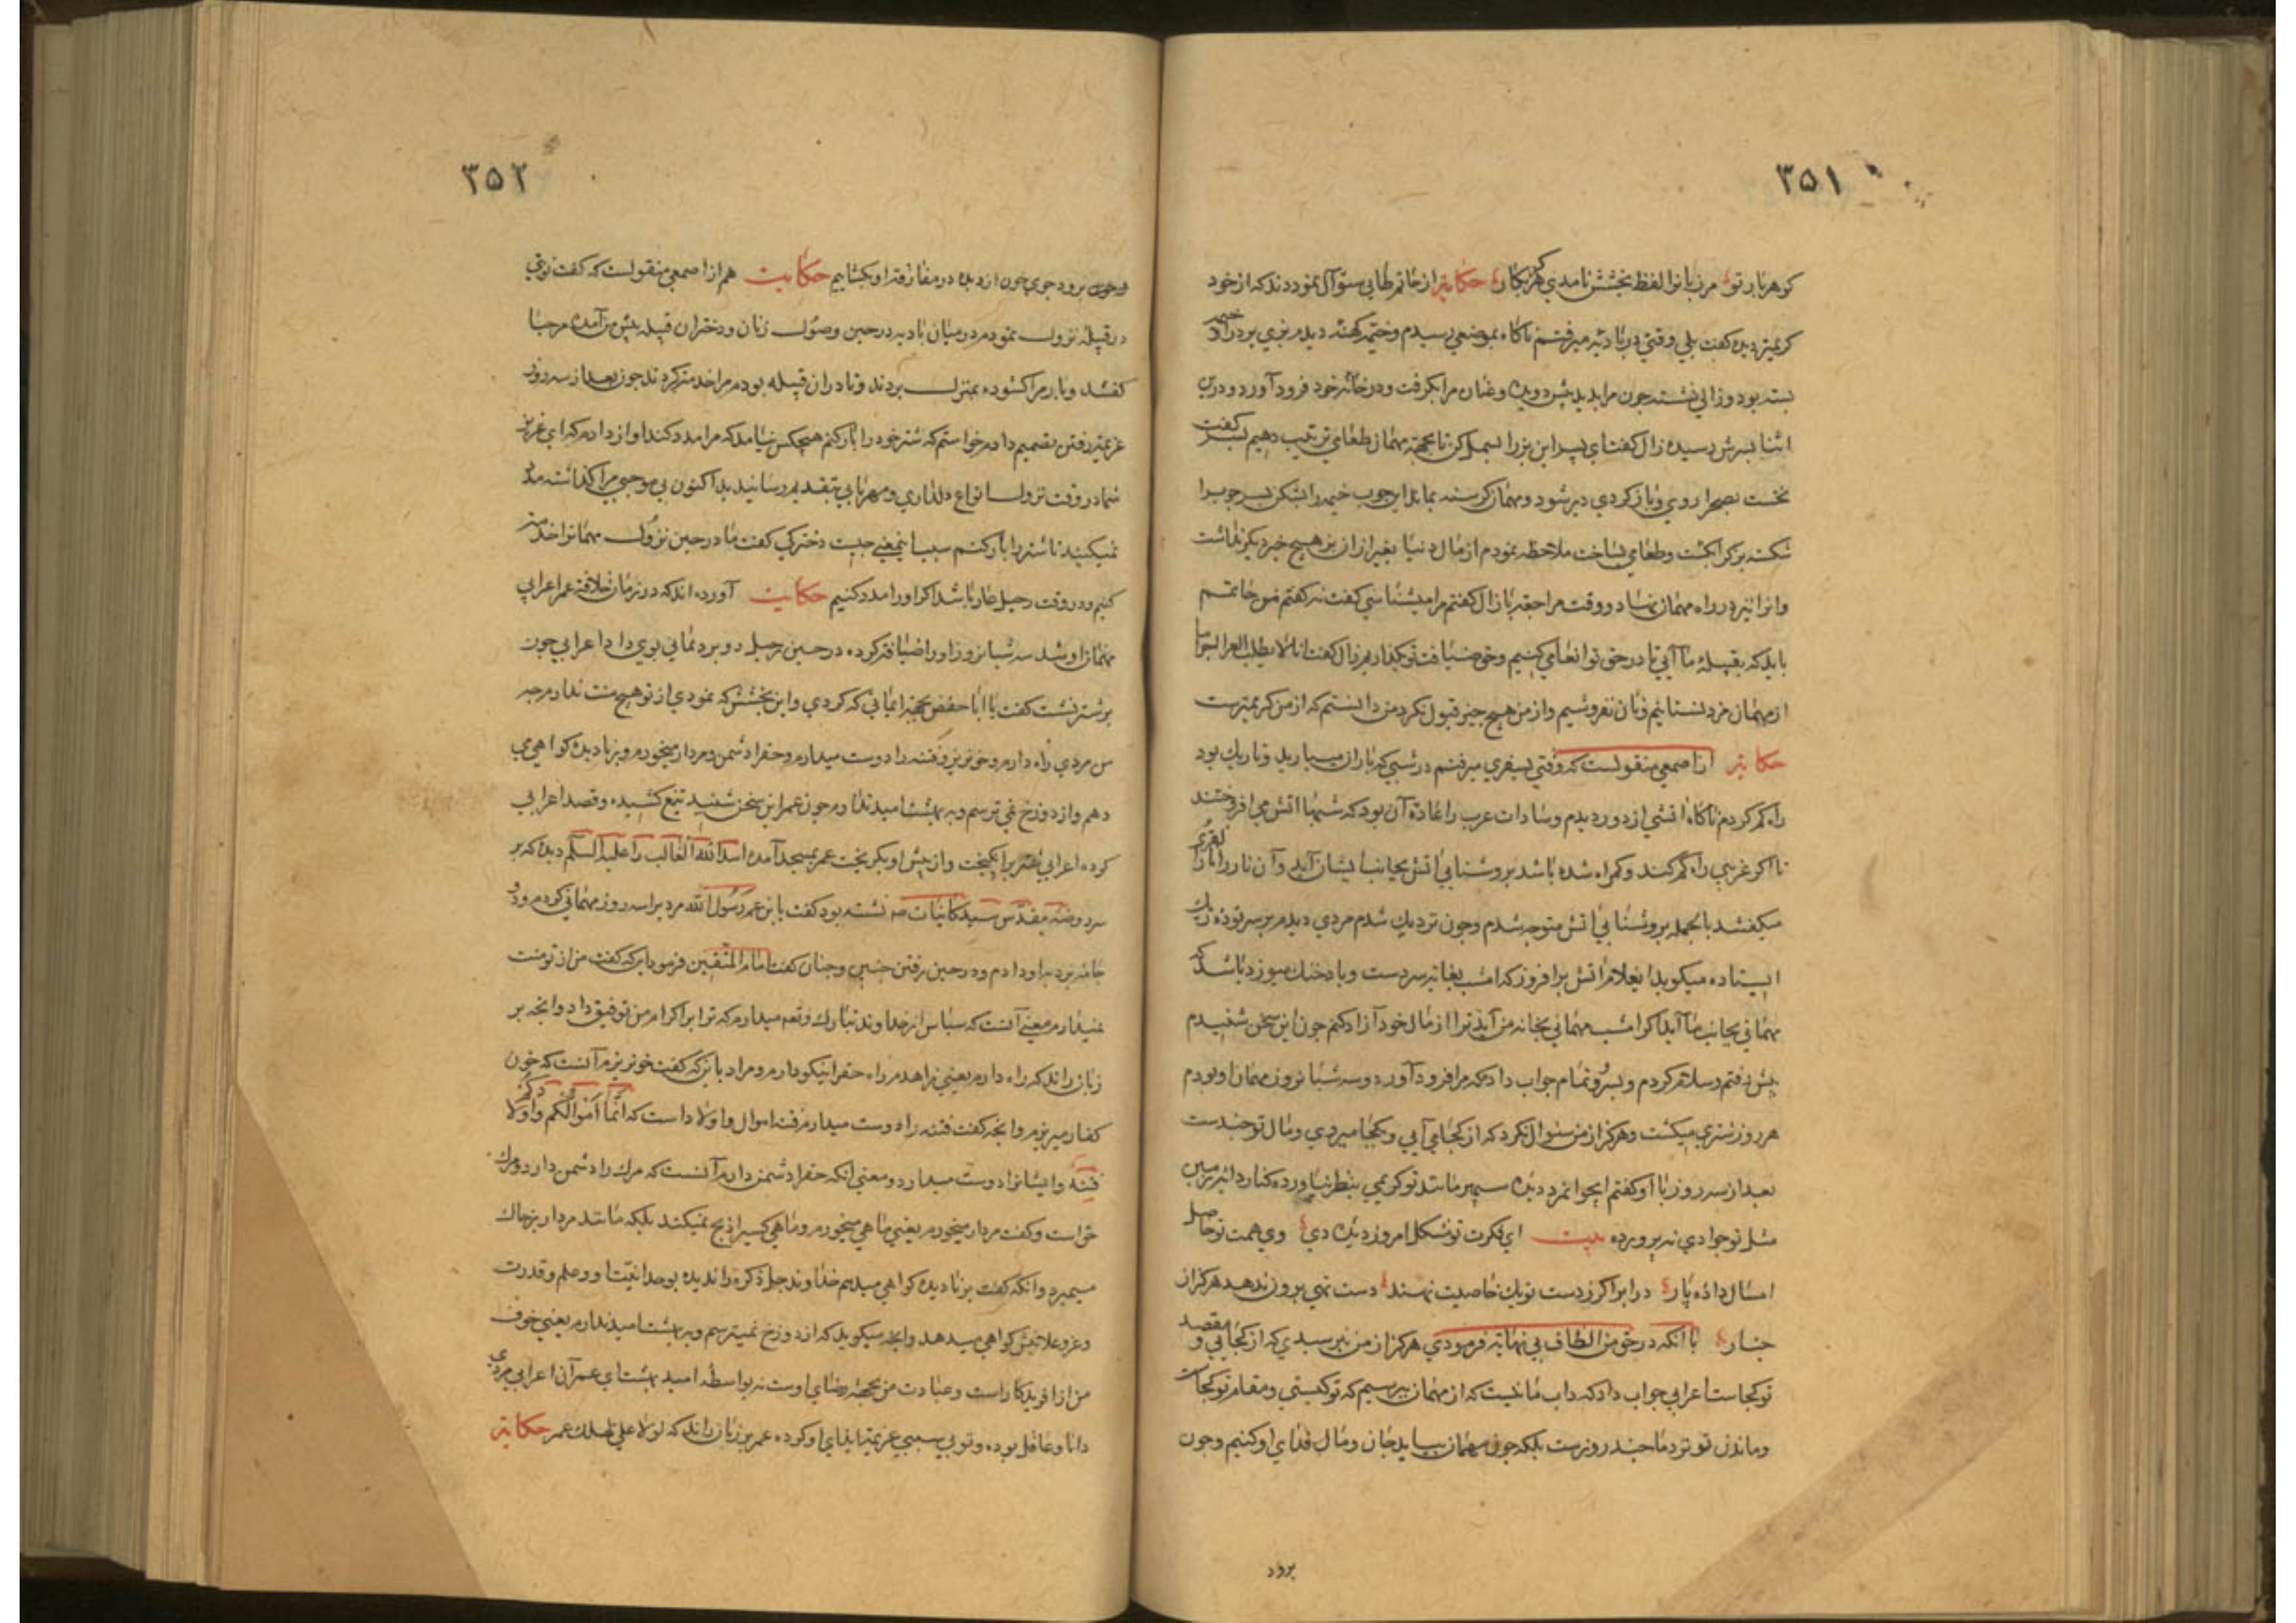 ۳۵۱
کوهربار تو مر زبانرا لفظ بخشش نامدی هرکز بکار حکایة از حاتم طایی سئوآل نمودند که از خود
کریمتر دیدهٔ کفت بلی وقتی در بادیه میرفتم ناکاه بموضعی رسیدم وخیمهٔ کهنه دیدم بزی بر در آن خیمه
بسته بود وزالی نشسته جون مرا بدید پیش دوید وعنان مرا بکرفت ودر خانهٔ خود فرود آورد ودرین
اثنا پسرش رسید زال کفت ای پسر این بز را بسمل کن تا بجهة مهمان طعامی ترتیب دهیم پسر کفت
نخست بصحرا روی وباز کردی دیر شود ومهمان کرسنه بماند این جوب خیمه را بشکن پسر جوب را
شکسته بز را بکشت وطعامی بساخت ملاحظه نمودم از مال دنیا بغیر از آن بز هیچ جیز دیکر نداشت
وانرا نیز در راه مهمان نهاد در وقت مراجعه با زال کفتم مرا میشناسی کفت نه کفتم من حاتمم
باید که بقبیلهٔ ما آیی تا در حق تو انعامی کنیم وحق ضیافت تو بکذاریم زال کفت انا لا نطلب الجزا
از مهمان مزد نستانیم ونان نفروشیم واز من هیچ جیز قبول نکرد من دانستم که از من کریمترست
حکایة از اصمعی منقولست که وقتی بسفری میرفتم در شبی که باران میبارید وتاریک بود
راه کم کردم ناکاه اتشی از دور دیدم وسادات عرب را عادة آن بود که شبها اتش می افروختند
تا اکر غریبی راه کم کند وکمراه شده باشد بروشنایی اتش بجانب ایشان آید وآن نار را نار القری
میکفتند بالجمله بروشنایی اتش متوجه شدم وجون نزدیک شدم مردی دیدم بر سر تودهٔ ریک
ایستاده میکوید ایغلام اتش برافروز که امشب بغایة سردست وباد خنک میوزد باشد که
مهمانی بجانب ما آید اکر امشب مهمانی بخانه من آید ترا از مال خود آزاد کنم جون این سخن شنیدم
پیش رفتم وسلام کردم وبسرور تمام جواب داد مرا فرود آورد وسه شبانروز مهمان او بودم
هر روز شتری میکشت وهرکز از من سئوال نکرد که از کجا می آیی وبکجا میروی ومال تو جندست
بعد از سه روز با او کفتم ایجوانمرد دیدهٔ سپهر مانند تو کریمی بنظر نیاورده وکنار دایهٔ زمین
مثل تو جوادی نپرورده بیت ای فکرت تو مشکل امروز دیده دی وی همت تو حاصل
امسال داده پار در ابر اکر ز دست تو یک خاصیت نهند دست تهی برون ندهد هرکز از
جنار با انکه در حق من الطاف بی نهایة فرمودی هرکز از من نپرسیدی که از کجایی ومقصد
تو کجاست اعرابی جواب داد که داب ما نیست که از مهمان بپرسیم که تو کیستی ومقام تو کجاست
وماندن تو نزد ما جند روزست بلکه جون مهمان بیاید جان ومال فدای او کنیم وجون
برود
۳۵۲
برود جوی خون از دیده در مفارقة او بکشاییم حکایت هم از اصمعی منقولست که کفت نوبتی
در قبیلهٔ نزول نمودم در میان بادیه در حین وصول زنان ودختران قبیله پیش من آمده مرحبا
کفتند وبار مرا کشوده بمنزل بردند وتا در ان قبیله بودم مرا خدمة کردند جون بعد از سه روز
عزیمة رفتن تصمیم دادم خواستم که شتر خود را بار کنم هیچکس نیامد که مرا مدد کند اواز دادم که ای عزیز
شما در وقت نزول انواع دلداری ومهربانی بتقدیم رسانیدید اکنون بی موجبی مرا کذاشته مدد
نمیکنید تا شتر را بار کنم سبب اینمعنی جیست دخترکی کفت ما در حین نزول مهمانرا خدمة
کنیم ودر وقت رحیل عار باشد اکر اورا مدد کنیم حکایت آورده اند که در زمان خلافة عمر اعرابی
مهمان او شد سه شبانروز اورا ضیافة کرده در حین رحیل دو برد یمانی بوی داد اعرابی جون
بر شتر نشست کفت یا ابا حفص بجهة این مهمانی که کردی واین بخشش که نمودی از تو هیچ منت ندارم جه
من مردی راه دارم وخونریزم وفتنه را دوست میدارم وحق را دشمن ومردار میخورم وبر نادیده کواهی می
دهم واز دوزخ نمی ترسم وبه بهشت امید ندارم جون عمر این سخن شنید تیغ کشیده وقصد اعرابی
کرده اعرابی شتر برانکیخت واز پیش او بکریخت عمر بمسجد آمده اسد الله الغالب را علیه السلم دید که بر
سر روضهٔ مقدس سید کاینات صه نشسته بود کفت یا بن عم رسول الله مردیرا سه روز مهمانی کردم ودو
جامه برد باو دادم ودر حین رفتن جنین وجنان کفت امام المتقین فرمود اینکه کفت من از تو منت
نمیدارم معنی آنست که سپاس از خداوند تبارک وتعه میدارم که ترا بر اکرام من توفیق داد وانجه بر
زبان راند که راه دارم یعنی زاهدم راه حق را نیکو دارم ومراد باینکه کفت خونریزم آنست که خون
کفار میریزم وانجه کفت فتنه را دوست میدارم فتنه اموال واولاد است که انما اموالکم واولادکم
فتنة وایشانرا دوست میدارد ومعنی انکه حق را دشمن دارم آنست که مرک را دشمن دارد ومرک
حق است وکفت مردار میخورم یعنی ماهی میخورم وماهی را کسی ذبح نمیکند بلکه مانند مردار بر خاک
میمیرد وانکه کفت بر نادیده کواهی میدهم خداوند جل ذکره را ندیده بوحدانیت او وعلم وقدرت
وعز وعلاش کواهی میدهد وانجه میکوید که از دوزخ نمیترسم وبه بهشت امید ندارم یعنی خوف
من از افریدکار است وعبادت من بجهة رضای اوست نه بواسطه امید بهشت ای عمر آن اعرابی مردی
دانا وعاقل بوده وتو بی سببی عزیمة ایذای او کرده عمر بر زبان راند که لولا علی لهلک عمر حکایة